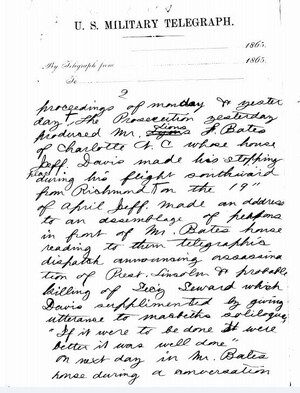 U. S. MILITARY TELEGRAPH.
1865.
By Telegraph from
1865.
To
2
proceedings of monday & yester
day. The Prosecution yesterday
produced Mr. Lions F Bates
of Charlotte N C whose house
Jeff. Davis made his stopping
place
during his flight southward
from Richmond on the 19"
of April Jeff. made an address
to an assemblage of persons
in front of Mr. Bates house
reading to them telegraphic
dispatch announsing assassina
tion of Pres. Lincoln & probable
killing of Secy Seward which
Davis supplimented by giving
utterance to macbeths soliloquy
"If it were to be done It were
better it was well done"
On next day in Mr. Bates
house during a conversation